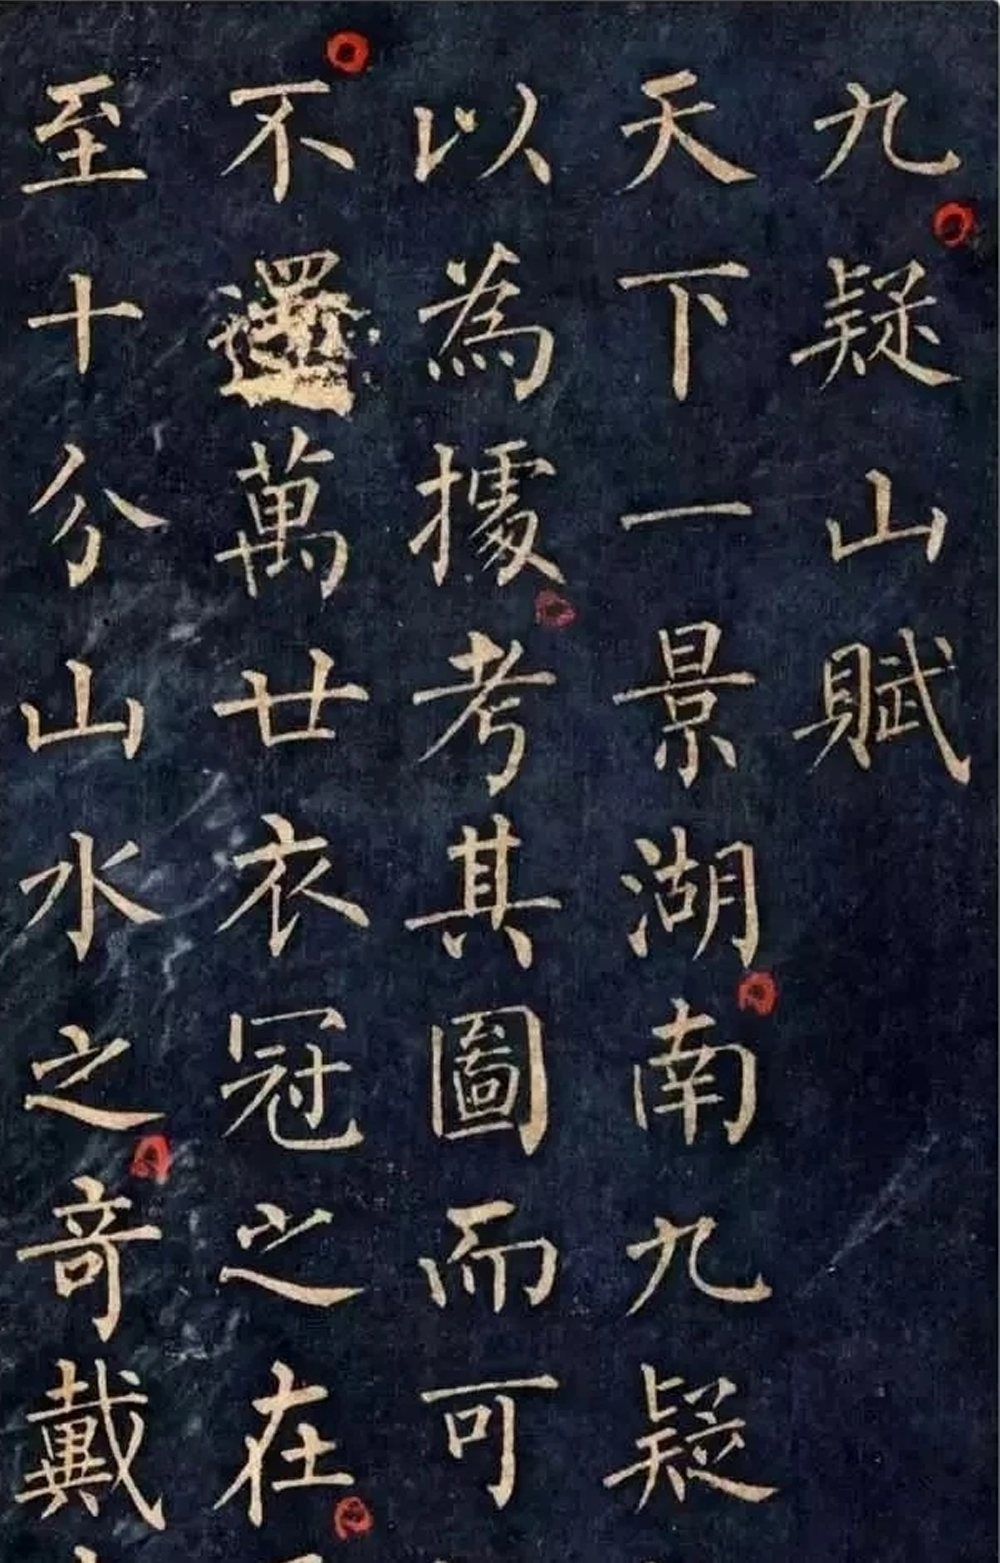 九疑山賦
天下一景湖南九疑
以為據考其圖而可
不萬廿衣冠之在
至十分山水之奇戴